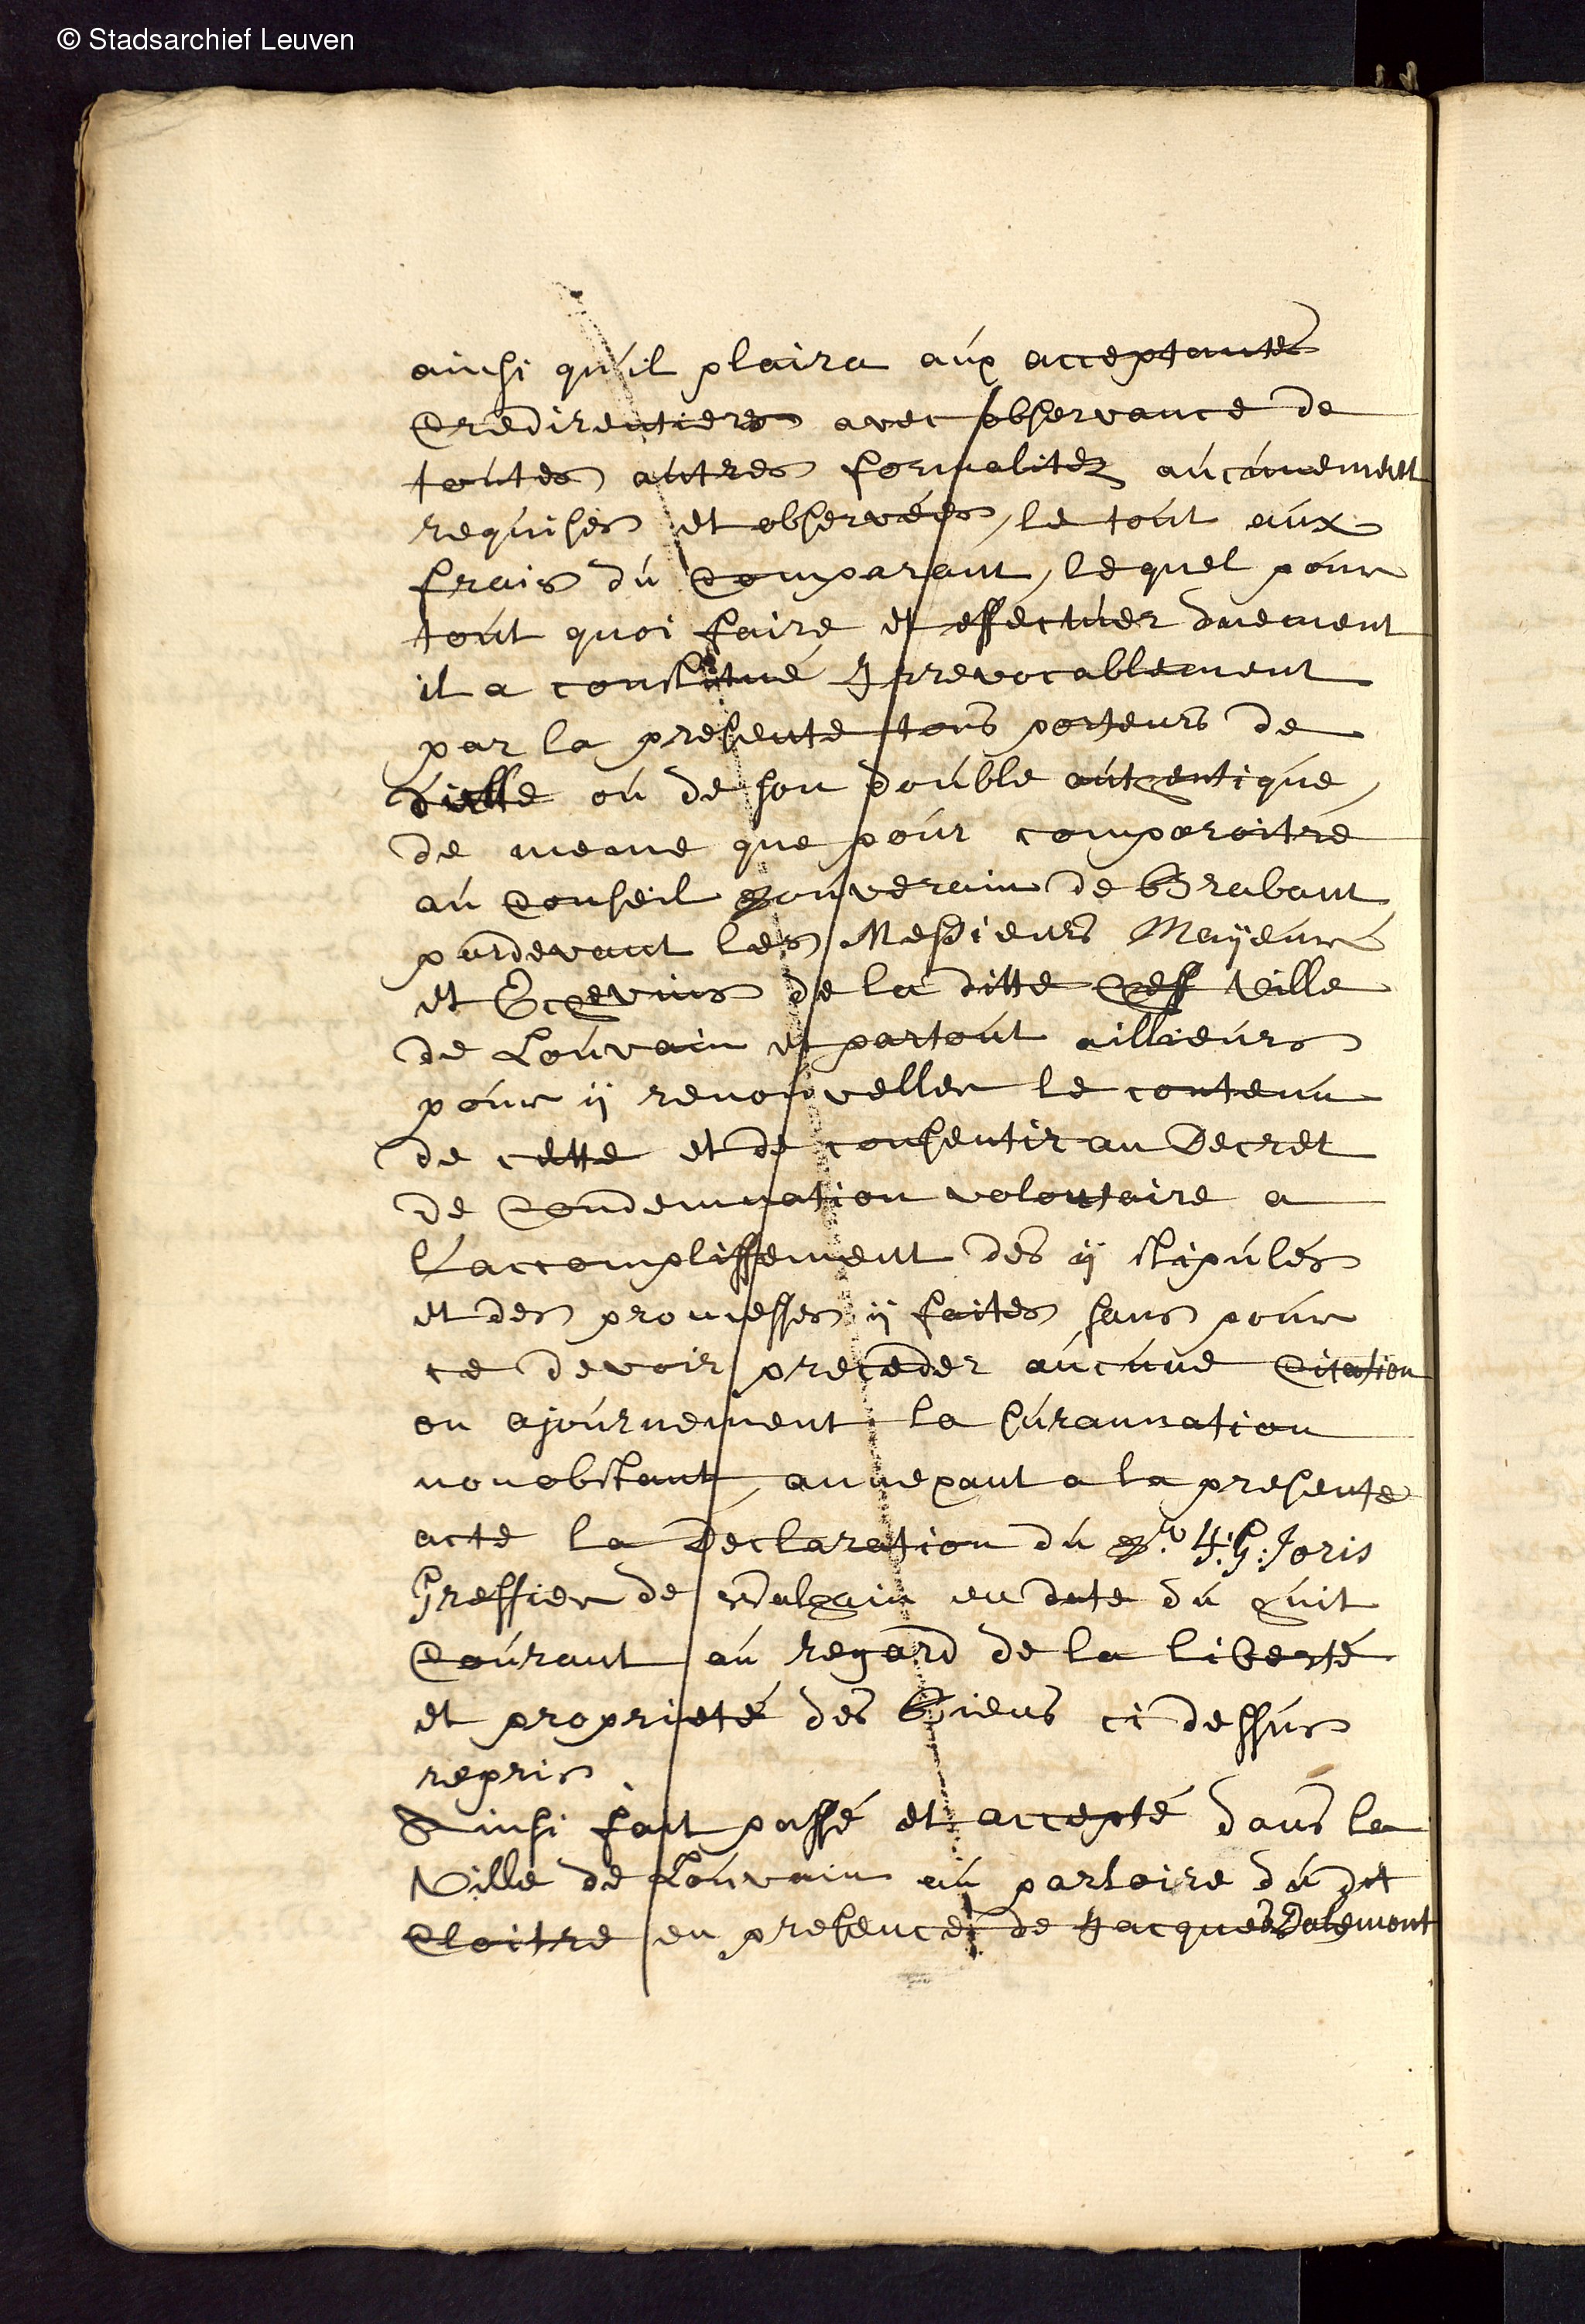 © Stadsarchief Leuven
ainsi qu'il plaira aux acceptantes
Credirentieres avec observance de
toutes autres formalitez aucunement
requises et observées, le tout aux
frais du Comparant, lequel pour
tout quoi faire et effectuer duement
il a constitué Irrevocablement
par la presente tous porteurs de
d'icelle ou de son double authentique,
de meme que pour comparoitre
au Conseil souverain de Brabant
pardevant les Messieurs Mayeur
et Echevins de la ditte Ville
de Louvain et partout aillieurs
pour ÿ renouveller le contenu
de cette et de consentir au Decret
de Condemnation volontaire a
l'accomplissement des ÿ stipulés
et des promesses ÿ faites sans pour
ce devoir preceder aucune Citation
ou ajournement la surannation
nonobstant, annexant a la presente
acte la Declaration du Sr. H: G: Joris
Greffier de Walhain en date du huit
Courant au regard de la liberté
et proprieté des Biens ci dessus
repris.
Ainsi fait passé et accepté dans la
Ville de Louvain au parloire du dit
Cloitre en presence de Jacques Dalemont